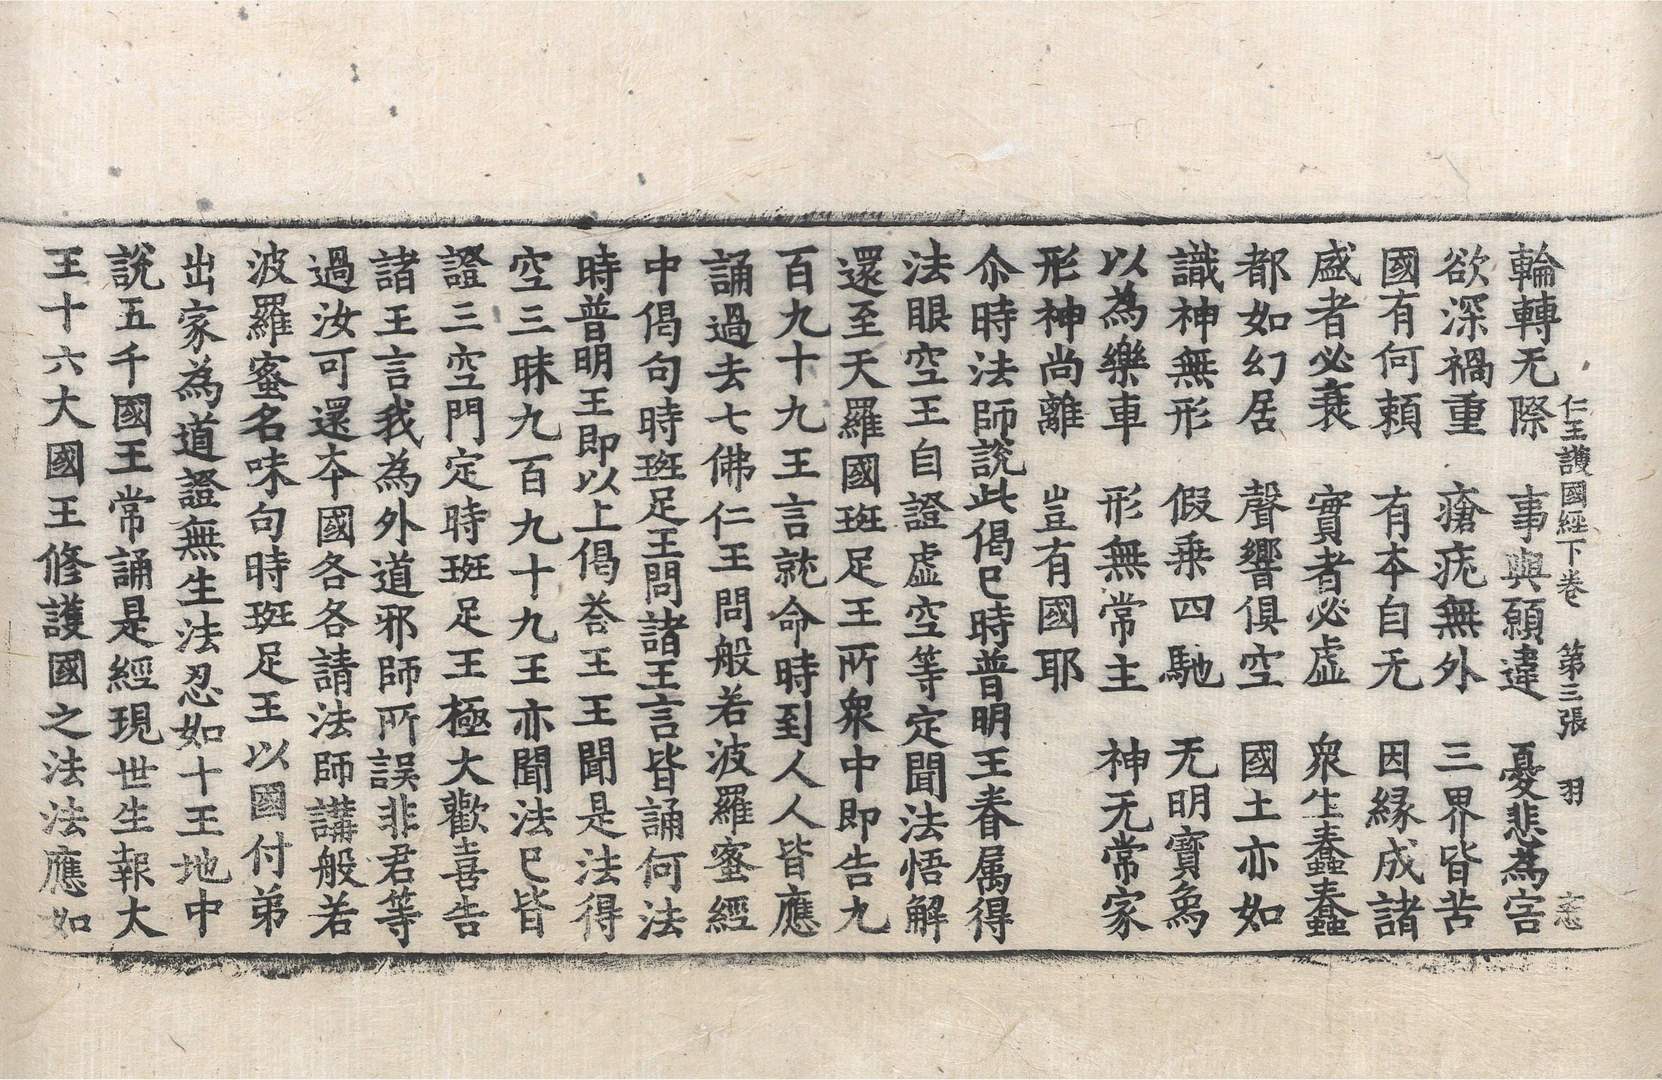 仁王護國經下卷 第三張 羽
輪轉无際 事與願違 憂悲為害
欲深禍重 瘡疣無外 三界皆苦
國有何頼 有本自无 因縁成諸
盛者必衰 實者必虛 衆生蠢蠢
都如幻居 聲響俱空 國土亦如
識神無形 假乗四馳 无明寳象
以為樂車 形無常主 神无常家
形神尚離 豈有國耶
尒時法師說此偈巳時普明王眷属得
法眼空王自證虛空等定聞法悟解
還至天羅國班足王所衆中即告九
百九十九王言就命時到人人皆應
誦過去七佛仁王問般若波羅蜜經
中偈句時班足王問諸王言皆誦何法
時普明王即以上偈荅王王聞是法得
空三昧九百九十九王亦聞法巳皆
證三空門定時班足王極大歡喜告
諸王言我為外道邪師所誤非君等
過汝可還夲國各各請法師講般若
波羅蜜名味句時班足王以國付弟
出家為道證無生法忍如十王地中
說五千國王常誦是經現世生報大
王十六大國王修護國之法法應如